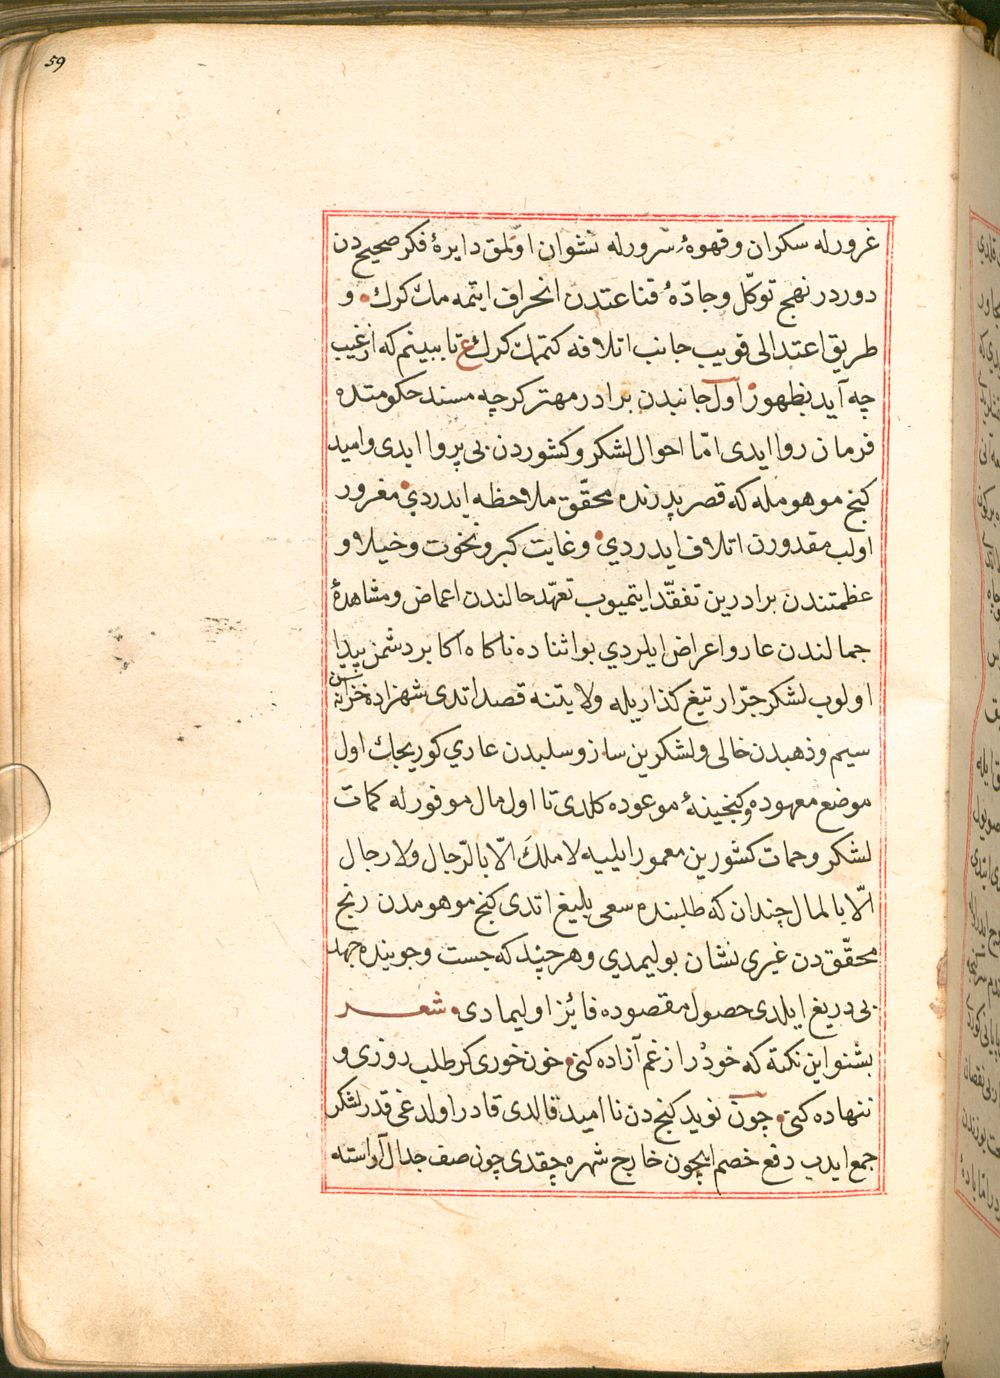 59
غرورله سكران وقهوۀ سرورله نشوان اولمق دايرۀ فكر صحيح دن
دوردر نهج توكّل وجادّۀ قناعتدن انحراف ايتمه مك كرك و
طريق اعتدالى قويب جانب اتلافه كتممك كرك ع تا ببينم كه از غيب
چه آيد بظهور اول جانبدن برادر مهتر كرچه مسند حكومتده
فرمان روا ايدى امّا احوال لشكر وكشوردن بى پروا ايدى واميد
كنج موهومله كه قصر پدرنده محقّق ملاحظه ايدردي مغرور
اولب مقدورن اتلاف ايدردي وغايت كبر ونخوت وخيلا و
عظمتندن برادرين تفقّد ايتميوب تعهّد حالندن اغماض ومشاهدۀ
جمالندن عار واعراض ايلردي بو اثناده ناكاه اكا بر دشمن پيدا
اولوب لشكر جرّار تيغ كذاريله ولايتنه قصد اتدى شهزاده خزانه سن
سيم وذهبدن خالى ولشكرين ساز وسلبدن عاري كوريجك اول
موضع معهوده وكنجينۀ موعوده كلدى تا اول مال موفورله كمات
لشكر وحمات كشورين معمور ايليه لا ملك الّا بالرّجال ولا رجال
الّا بالمال چندان كه طلبنده سعى بليغ اتدى كنج موهومدن رنج
محقّق دن غيرى نشان بوليمدي وهر چند كه جست وجوينده جهد
بى دريغ ايلدى حصول مقصوده فائز اوليمادى شعر
بشنو اين نكته كه خود را ز غم آزاده كنى خون خورى كر طلب روزى و
ننهاده كنى چون نويد كنج دن نااميد قالدى قادر اولدغى قدر لشكر
جمع ايدب دفع خصم ايچون خارج شهره چقدى چون صف جدال آراسته